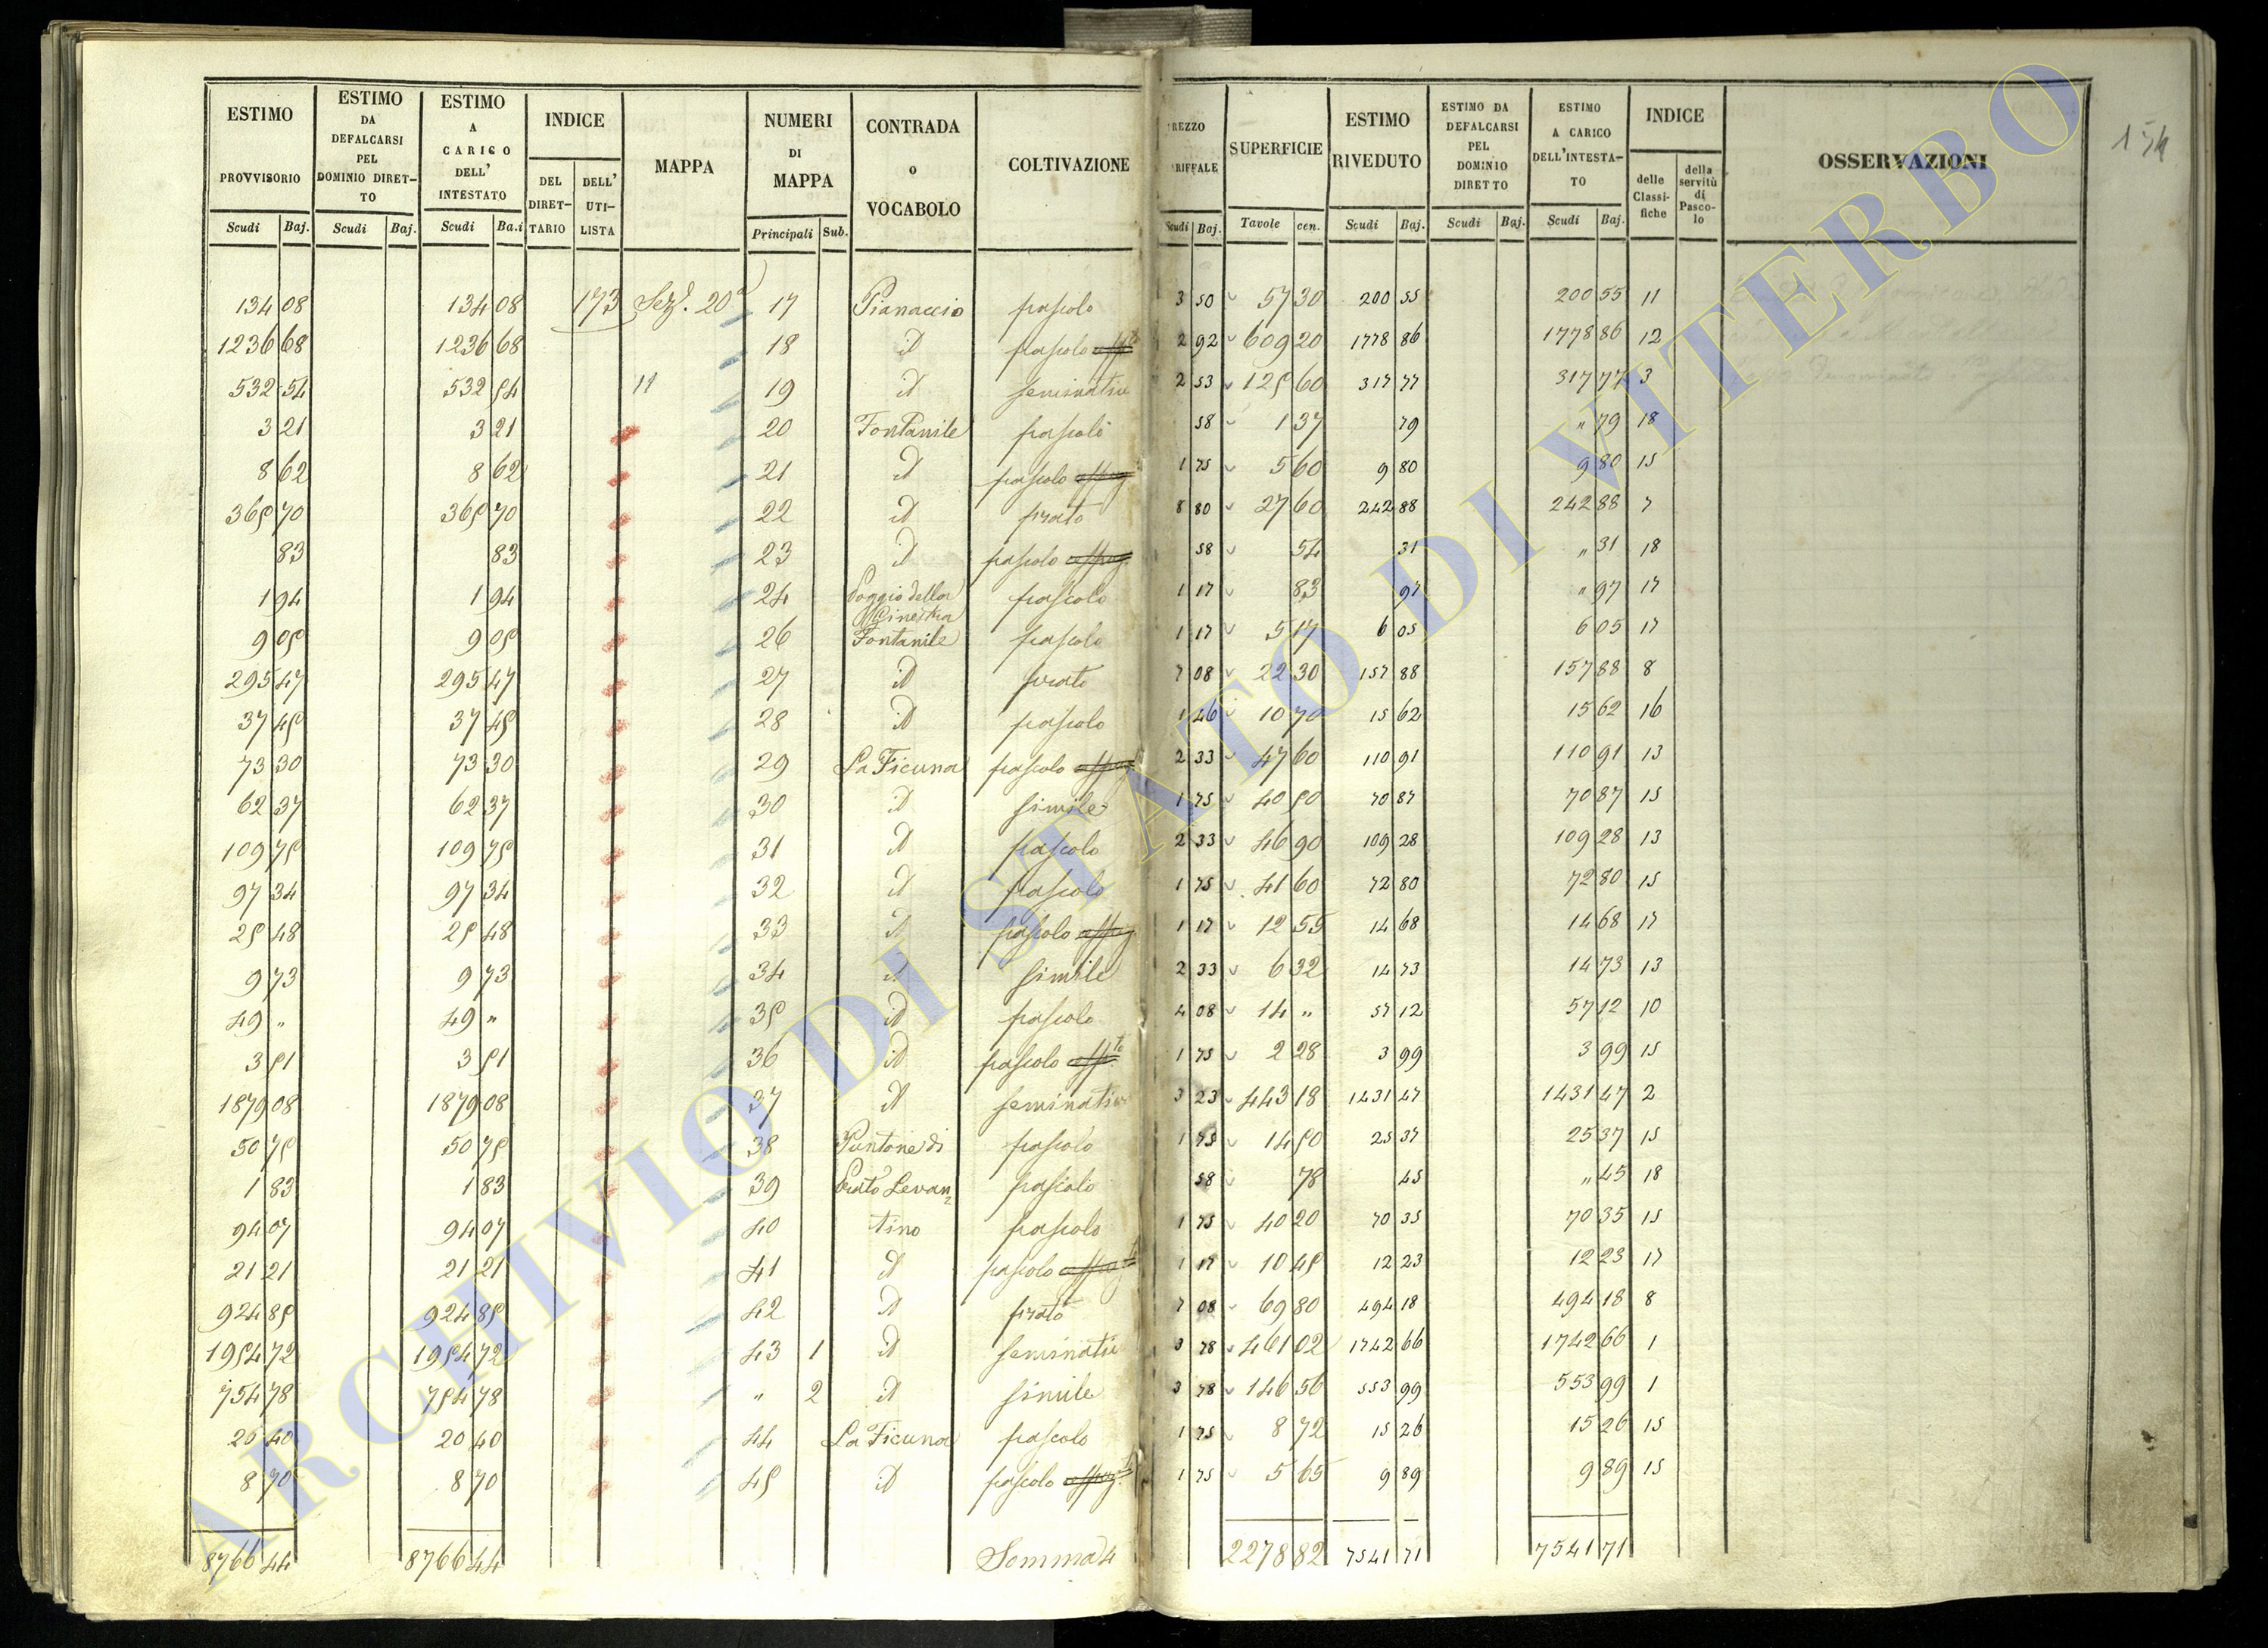 ESTIMO PROVVISORIO Scudi Baj. | ESTIMO DA DEFALCARSI PEL DOMINIO DIRET-TO Scudi Baj. | ESTIMO A CARICO DELL' INTESTATO Scudi Ba.i | INDICE DEL DIRET-TARIO DELL' UTI-LISTA | MAPPA | NUMERI DI MAPPA Principali Sub. | CONTRADA o VOCABOLO | COLTIVAZIONE | REZZO RIFFALE Scudi Baj. | SUPERFICIE Tavole cen. | ESTIMO RIVEDUTO Scudi Baj. | ESTIMO DA DEFALCARSI PEL DOMINIO DIRETTO Scudi Baj. | ESTIMO A CARICO DELL'INTESTA-TO Scudi Baj. | INDICE delle Classi-fiche della servitù di Pasco-lo | OSSERVAZIONI
134 08 134 08 173 Sez. 20a 17 Pianaccio pascolo 3 50 57 30 200 55 200 55 11
1236 68 1236 68 18 id pascolo 2 92 609 20 1778 86 1778 86 12
532 54 532 54 11 19 id seminativo 2 53 125 60 317 77 317 77 3
3 21 3 21 20 Fontanile pascolo 58 1 37 79 " 79 18
8 62 8 62 21 id pascolo 1 75 5 60 9 80 9 80 15
365 70 365 70 22 id prato 8 80 27 60 242 88 242 88 7
83 83 23 id pascolo 58 54 31 " 31 18
1 94 1 94 24 Poggio della Ginestra pascolo 1 17 83 97 " 97 17
9 05 9 05 26 Fontanile pascolo 1 17 5 17 6 05 6 05 17
295 47 295 47 27 id prato 7 08 22 30 157 88 157 88 8
37 45 37 45 28 id pascolo 1 46 10 70 15 62 15 62 16
73 30 73 30 29 La Ficuna pascolo 2 33 47 60 110 91 110 91 13
62 37 62 37 30 id simile 1 75 40 50 70 87 70 87 15
109 75 109 75 31 id pascolo 2 33 46 90 109 28 109 28 13
97 34 97 34 32 id pascolo 1 75 41 60 72 80 72 80 15
25 48 25 48 33 id pascolo 1 17 12 55 14 68 14 68 17
9 73 9 73 34 id simile 2 33 6 32 14 73 14 73 13
49 " 49 " 35 id pascolo 4 08 14 " 57 12 57 12 10
3 51 3 51 36 id pascolo 1 75 2 28 3 99 3 99 15
1879 08 1879 08 37 id seminativo 3 23 443 18 1431 47 1431 47 2
50 75 50 75 38 Puntone di pascolo 1 75 14 50 25 37 25 37 15
1 83 1 83 39 Prato Levan= pascolo 58 78 45 " 45 18
94 07 94 07 40 tino pascolo 1 75 40 20 70 35 70 35 15
21 21 21 21 41 id pascolo 1 17 10 45 12 23 12 23 17
924 85 924 85 42 id prato 7 08 69 80 494 18 494 18 8
1954 72 1954 72 43 1 id seminativo 3 78 461 02 1742 66 1742 66 1
754 78 754 78 " 2 id simile 3 78 146 56 553 99 553 99 1
20 40 20 40 44 La Ficuna pascolo 1 75 8 72 15 26 15 26 15
8 70 8 70 45 id pascolo 1 75 5 65 9 89 9 89 15
8766 44 8766 44 Somma 2278 82 7541 71 7541 71
ARCHIVIO DI STATO DI VITERBO